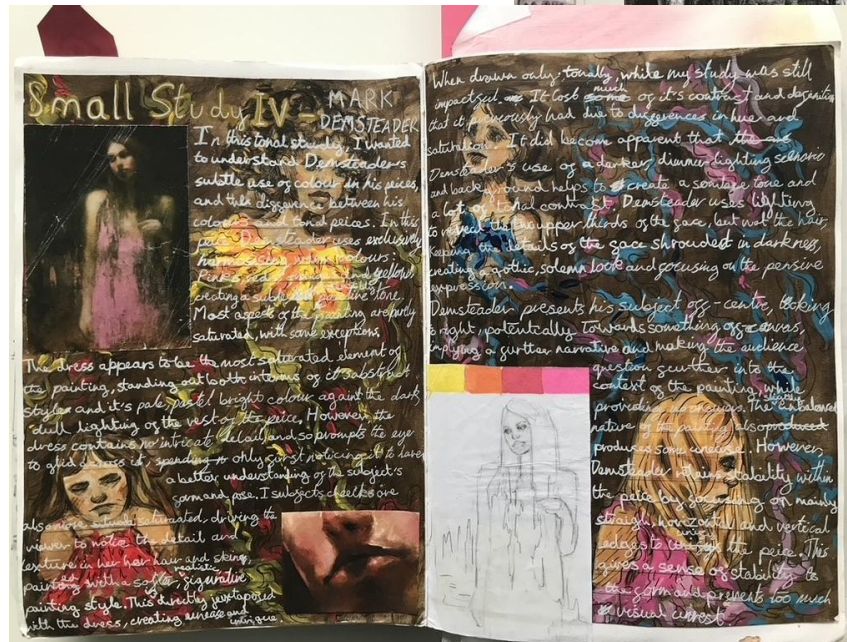 Small Study IV - MARK
DEMSTEADER
In this tonal study, I wanted
to understand Demsteaders
subtle use of colour in his peices,
and the difference between his
colour and tonal peices. In this
peice Demsteader uses exclusively
harmonious colours:
Pinks and yellows,
creating a subtle tone.
Most aspects of the painting are partly
saturated, with some exceptions,
The dress appears to be the most saturated element of
the painting, standing out both interms of it's abstract
style and it's pale, pastel bright colour against the dark
dull lighting of the rest of the peice. However the
dress contains no intricate detail and so prompts the eye
to glide across it, only first noticing it to have
a better understanding of the subject's
form and pose. I subjects cheeks are
also more saturated, driving the
viewer to notice the detail and
texture in her hair and skin,
painted with a softer, realistic, figurative
painting style. This directly juxtaposed
with the dress, creating unease and
intrigue.
When drawn only tonally, while my study was still
impactful It lost much of it's contrast and
that it previously had due to differences in hue and
saturation. It did become apparent that
Demsteader's use of a darker, dimmer lighting scenario
and background helps to create a sombre tone and
a lot of tonal contrast. Demsteader uses lighting
to reveal the upper thirds of the face, but not the hair,
keeping the details of the face shrouded in darkness,
creating a gothic, solemn look and focusing on the pensive
expression.
Demsteader presents his subject off-centre, looking
right, potentially towards something off-canvas,
implying a further narrative and making the audience
question further into the
context of the painting, while
providing no answers. The slightly unbalanced
nature of the painting also produced
produces some unease. However,
Demsteader retains stability within
the peice by focusing on mainly
straight, horizontal and vertical
edges to the peice. This
gives a sense of stability to
the form and prevents too much
visual unrest.